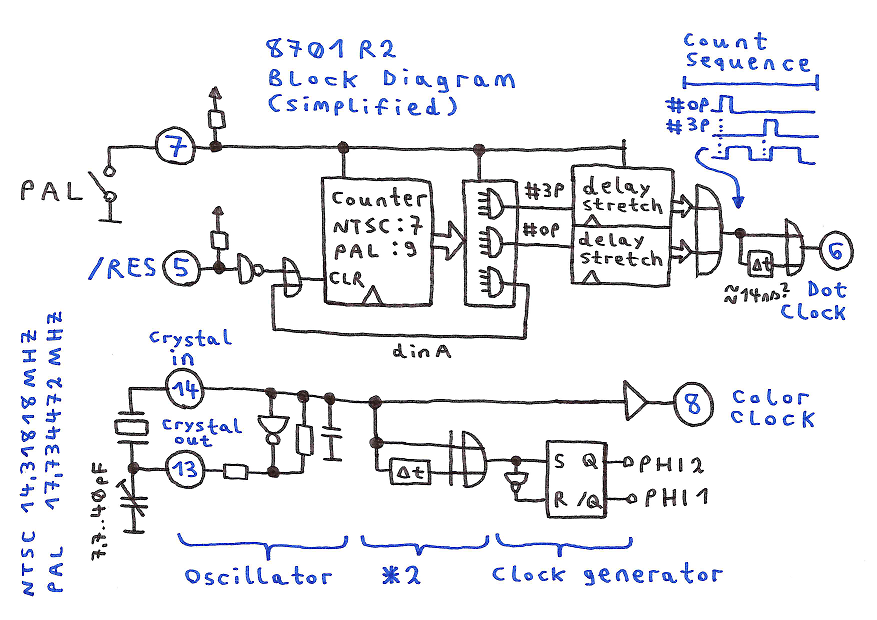 8701 R2
Block Diagram
(simplified)
Count
Sequence
#0P
#3P
7
PAL
Counter
NTSC:7
PAL :9
CLR
#3P
#0P
delay
stretch
delay
stretch
/RES
5
Δt
≈14ns?
6
Dot
Clock
dinA
NTSC 14,31818 MHZ
PAL 17,734472 MHZ
Crystal
in
14
Crystal
out
13
7,7..40pF
Δt
8
Color
Clock
S Q
R /Q
PHI2
PHI1
Oscillator
*2
Clock generator